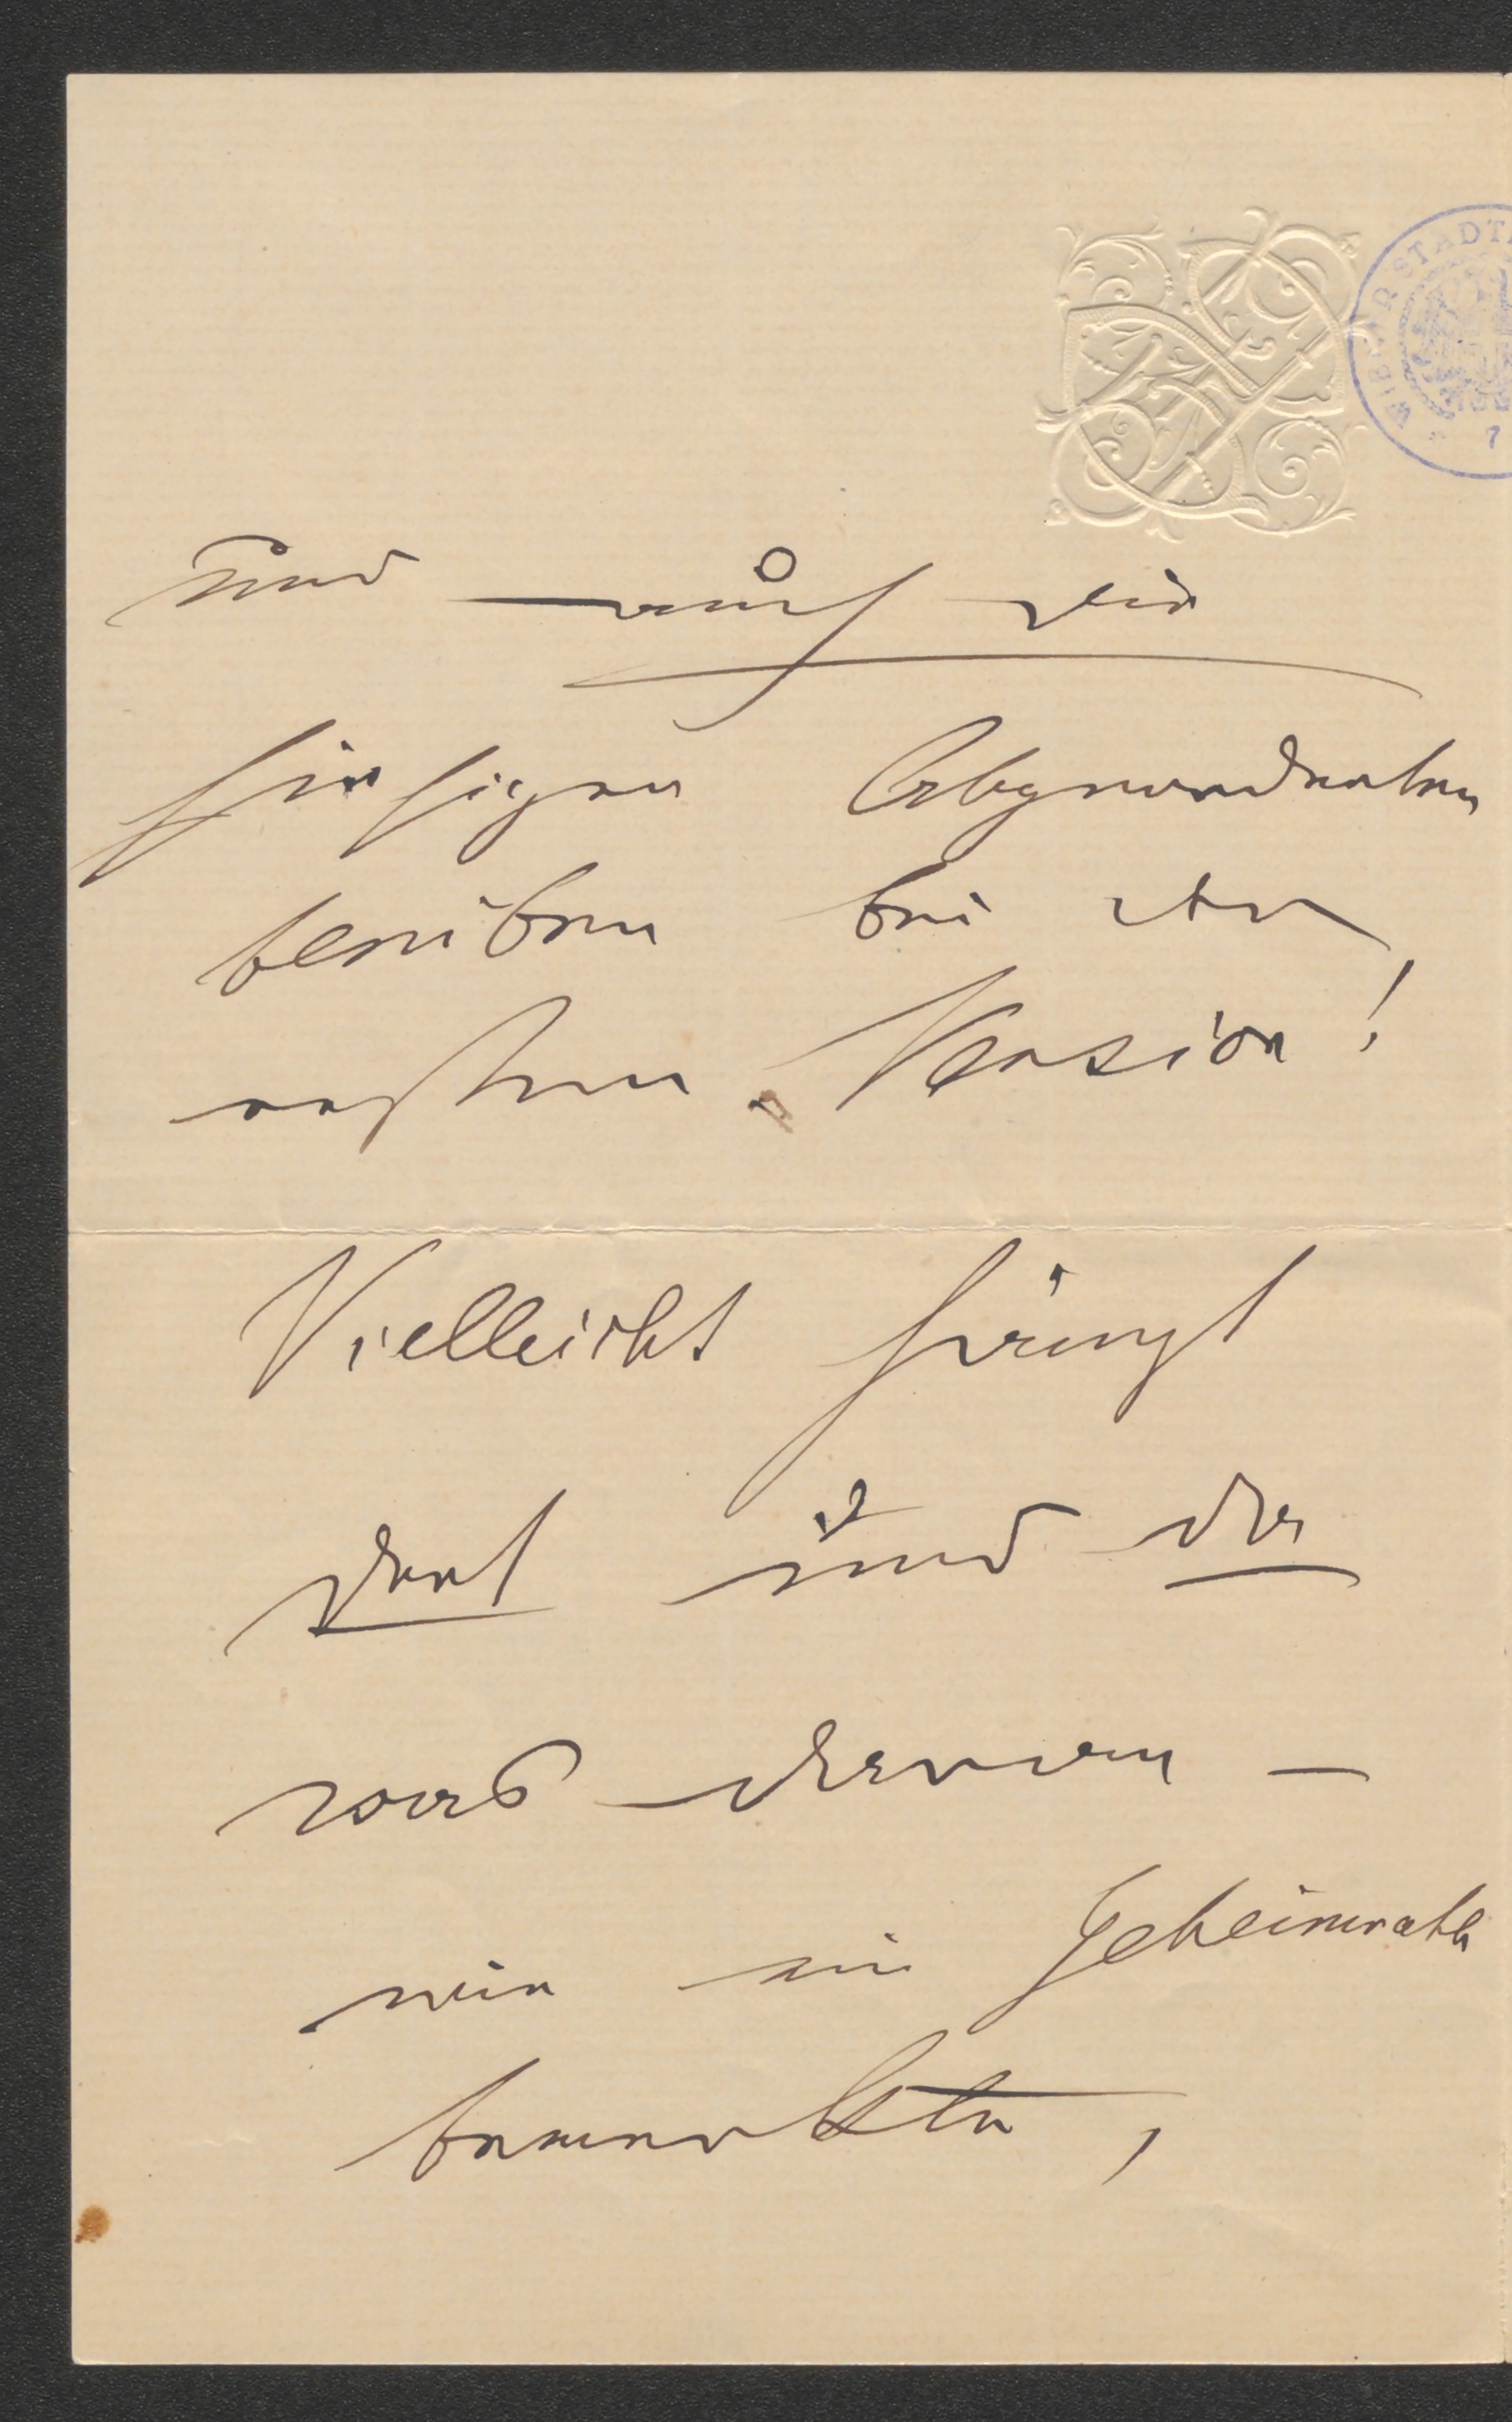 WIENER STADT
7
und auch die
hiesigen Abgeordneten
bleiben bei der
ersten Version!
Vielleicht hängt
dort und da
was davon –
wie ein Geheimrath
bemerkte,